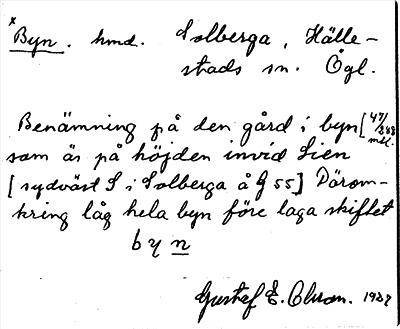 x Byn. hmd. Solberga, Hälle-
stads sn. Ögl.
Benämning på den gård i byn [47/288 mtl.
som är på höjden invid Sien
[sydväst S i Solberga å G 55] Därom-
kring låg hela byn före laga skiftet
byn
Gustaf E. Olsson. 1937